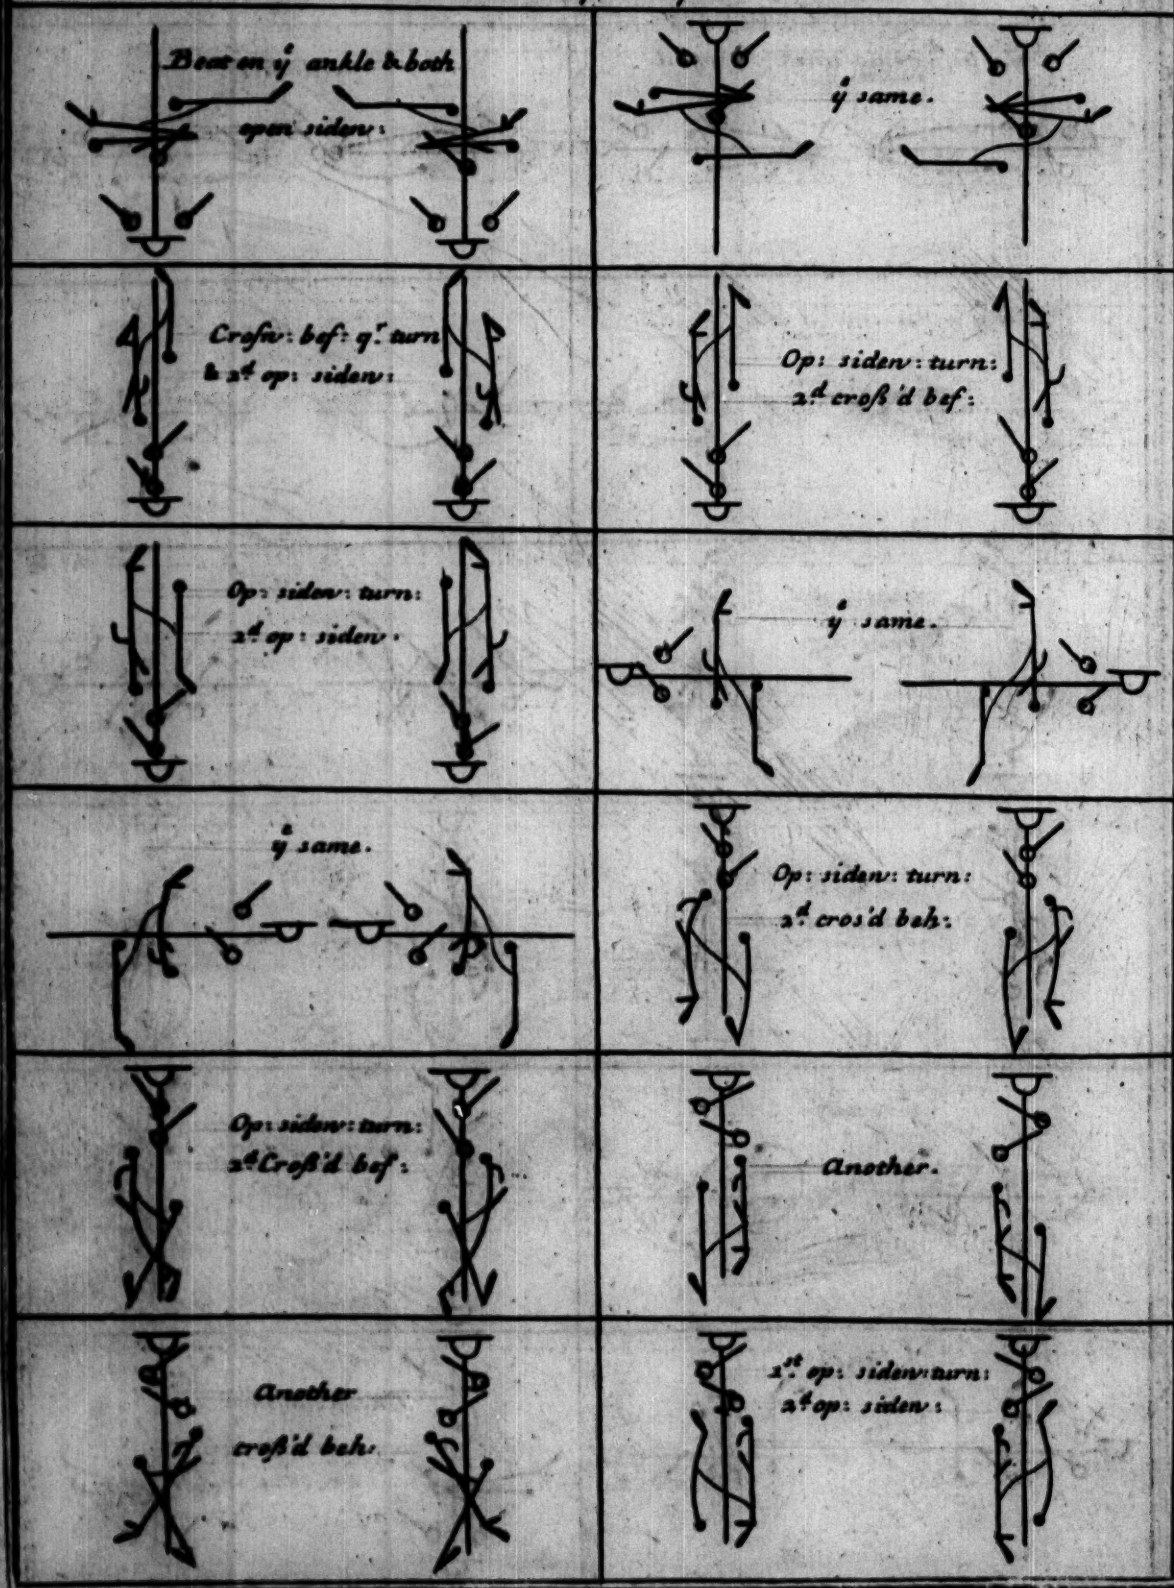 Beat on yͤ ankle & both
open siden:
yͤ same.
Crosn: bef: qʳ turn
& 2ᵈ op: siden:
Op: siden: turn:
2ᵈ croß'd bef:
Op: siden: turn:
2ᵈ op: siden.
yͤ same.
yͤ same.
Op: siden: turn:
2ᵈ cros'd beh:
Op: siden: turn:
2ᵈ Croß'd bef:
Another.
Another
croß'd beh:
1ˢᵗ op: siden: turn:
2ᵈ op: siden: